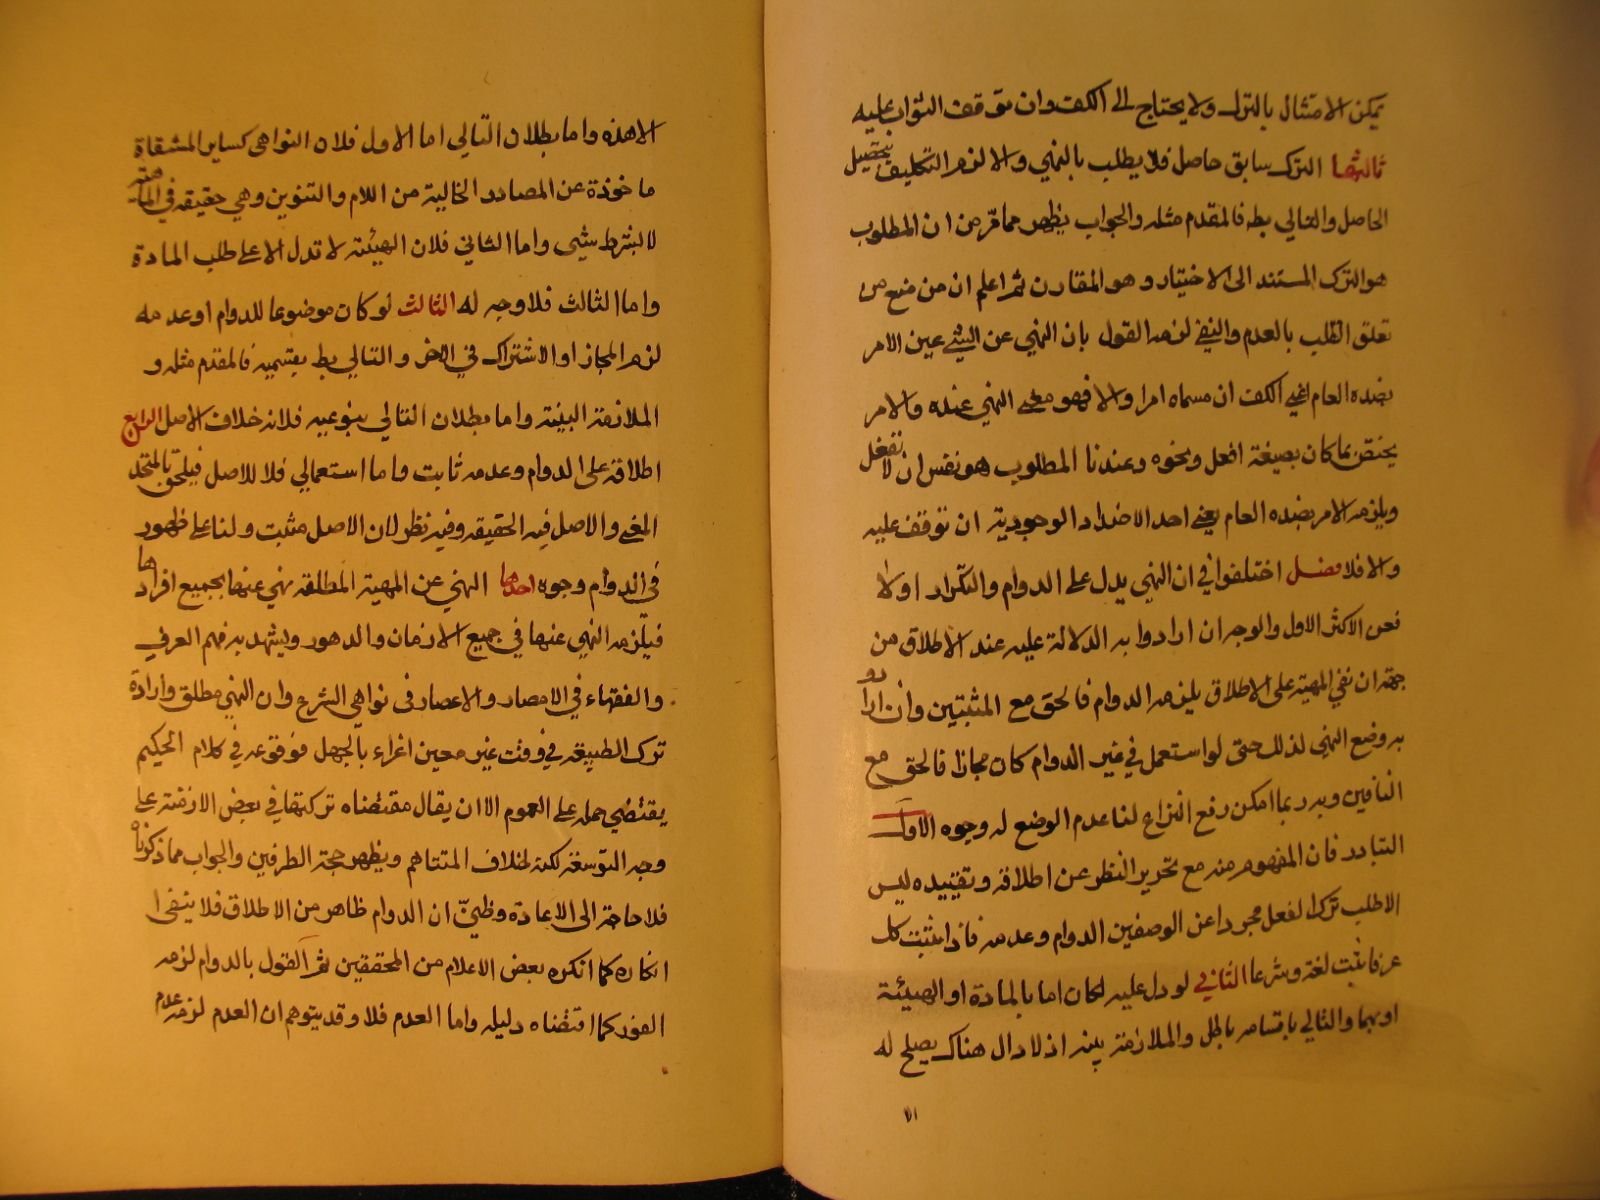 يمكن الامتثال بالترك ولا يحتاج الى الكف وان توقف الثواب عليه
ثالثها الترك سابق حاصل فلا يطلب بالنهي والا لزم التكليف بتحصيل
الحاصل والتالي بط فالمقدم مثله والجواب يظهر مما مر من ان المطلوب
هو الترك المستند الى الاختيار وهو المقارن ثم اعلم ان من منع من
تعلق الطلب بالعدم والنفي لزمه القول بان النهي عن الشئ عين الامر
بضده العام اعني الكف ان مسماه امرا والا فهو معنى النهي عنده والامر
يختص بما كان بصيغة افعل ونحوه وعندنا المطلوب هو نفس ان لا تفعل
ويلزمه الامر بضده العام يعني احد الاضداد الوجودية ان توقف عليه
والا فلا فصل اختلفوا في ان النهي يدل على الدوام والتكرار او لا
فعن الاكثر الاول والوجه ان ارادوا به الدلالة عليه عند الاطلاق من
جهة ان نفي المهية على الاطلاق يلزمه الدوام فالحق مع المثبتين وان ارادو
به وضع النهي لذلك حتى لو استعمل في غير الدوام كان مجازا فالحق مع
النافين وبه ربما امكن رفع النزاع لنا عدم الوضع له وجوه الاول
التبادر فان المفهوم منه مع تحرير النظر عن اطلاقه وتقييده ليس
الا طلب ترك الفعل مجردا عن الوصفين الدوام وعدمه فاذا ثبت كك
عرفا ثبت لغة وشرعا الثاني لو دل عليه لكان اما بالمادة او الهيئة
او بهما والتالي باقسامه باطل والملازمة بينه اذ لا دال هناك يصلح له
الا
الا هذه واما بطلان التالي اما الاول فلان النواهي كساير المشتقاة
ماخوذة عن المصادر الخالية من اللام والتنوين وهي حقيقة في المهية
لا بشرط شئ واما الثاني فلان الهيئة لا تدل الا على طلب المادة
واما الثالث فلا وجه له الثالث لو كان موضوعا للدوام او عدمه
لزم المجاز او الاشتراك في الاخر والتالي بط بقسميه فالمقدم مثله و
الملازمة البينة واما بطلان التالي بنوعيه فلانه خلاف الاصل الرابع
اطلاقه على الدوام وعدمه ثابت واما استعمالي فلا للاصل فيلحق بالمتحد
المعنى والاصل فيه الحقيقه وفيه نظر لان الاصل مثبت ولنا على ظهور
في الدوام وجوه احدها النهي عن المهية المطلقه نهي عنها بجميع افرادها
فيلزمه النهي عنها في جميع الازمان والدهور ويشهد به فهم العرف
والفقهاء في الامصار والاعصار في نواهي الشرع وان النهي مطلق وارادة
ترك الطبيعة في وقت غير معين اغراء بالجهل فوقوعه في كلام الحكيم
يقتضي حمله على العموم الا ان يقال مقتضاه تركها في بعض الازمنة على
وجه التوسعة لكنه لخلاف المتفاهم ويظهر حجة الطرفين والجواب مما ذكرناه
فلا حاجة الى الاعادة وظني ان الدوام ظاهر من الاطلاق فلا ينبغي ا
انكاره كما انكره بعض الاعلام من المحققين ثم القول بالدوام لزمه
الفور كما اقتضاه دليله واما العدم فلا وقد يتوهم ان العدم لزمه عدم